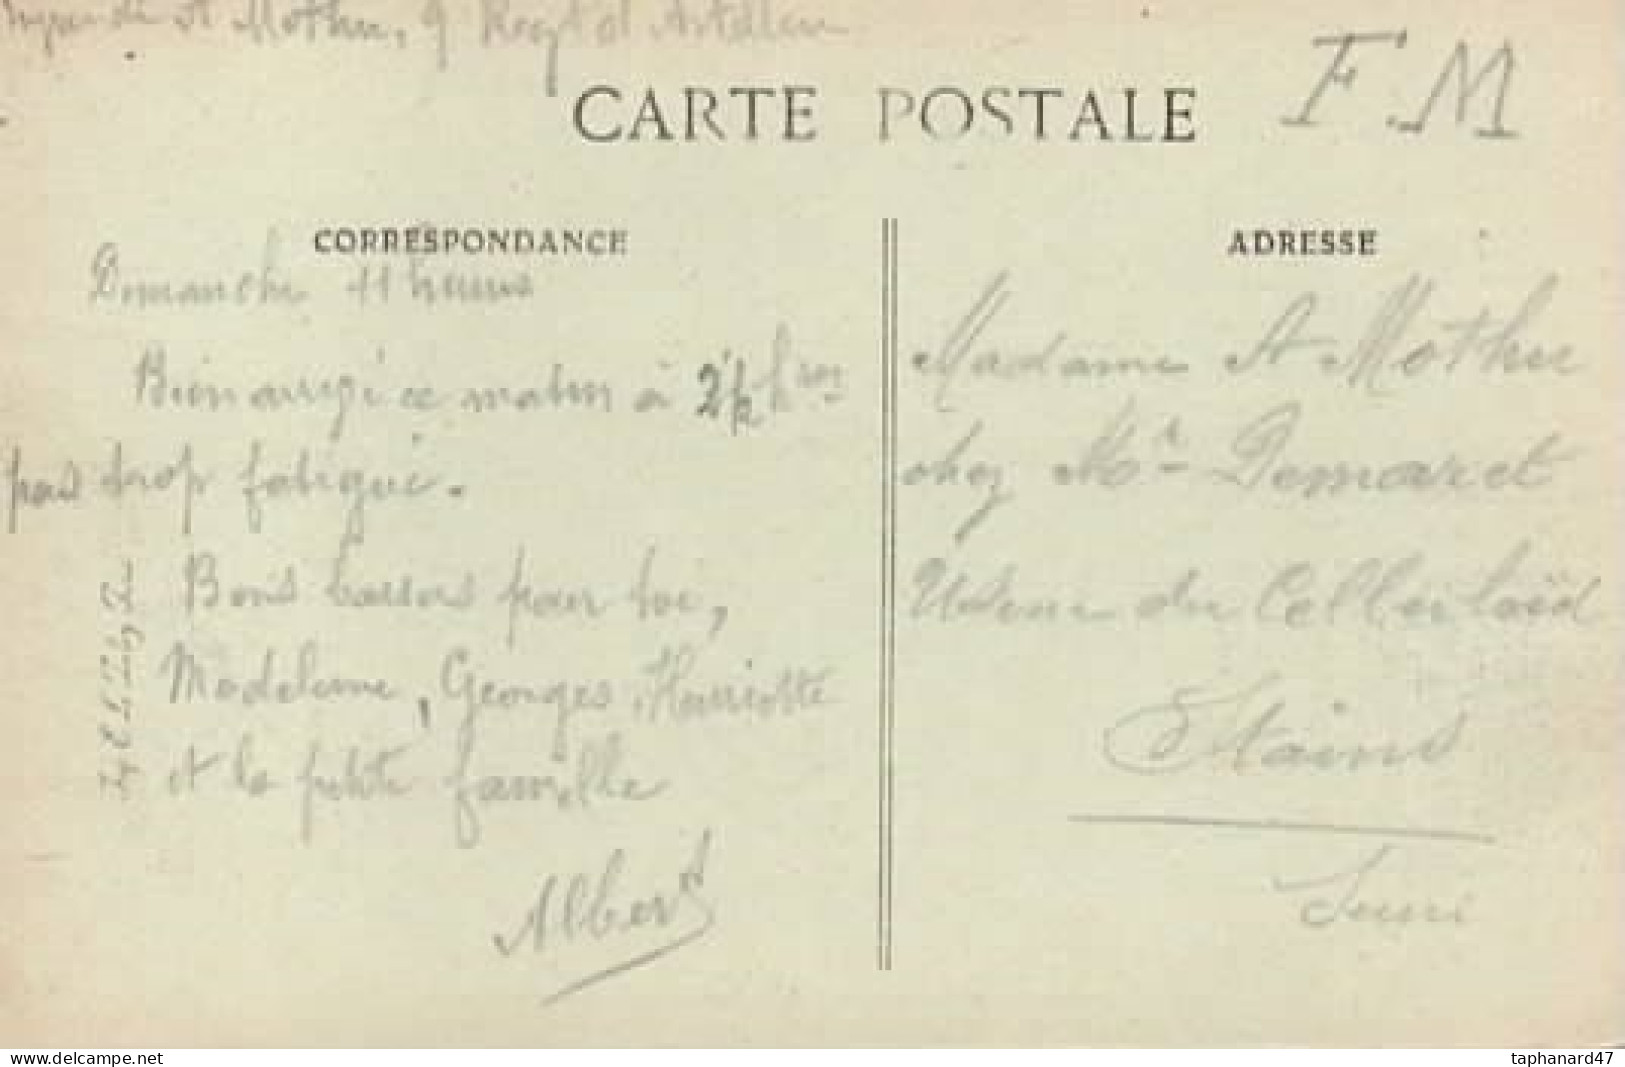 St Mothu, 9 Regt d'Artillerie
F.M
CARTE POSTALE
CORRESPONDANCE
Domanche 11 heures
Bien arrivé ce matin à 2 1/2 hres
pas trop fatigué.
Bons baisers pour toi,
Madeleine, Georges, Henriette
et la petite famille
Albert
ADRESSE
Madame St Mothu
chez Mr Demaret
Usine du Celluloïd
Stains
Seine
www.delcampe.net
taphanard47